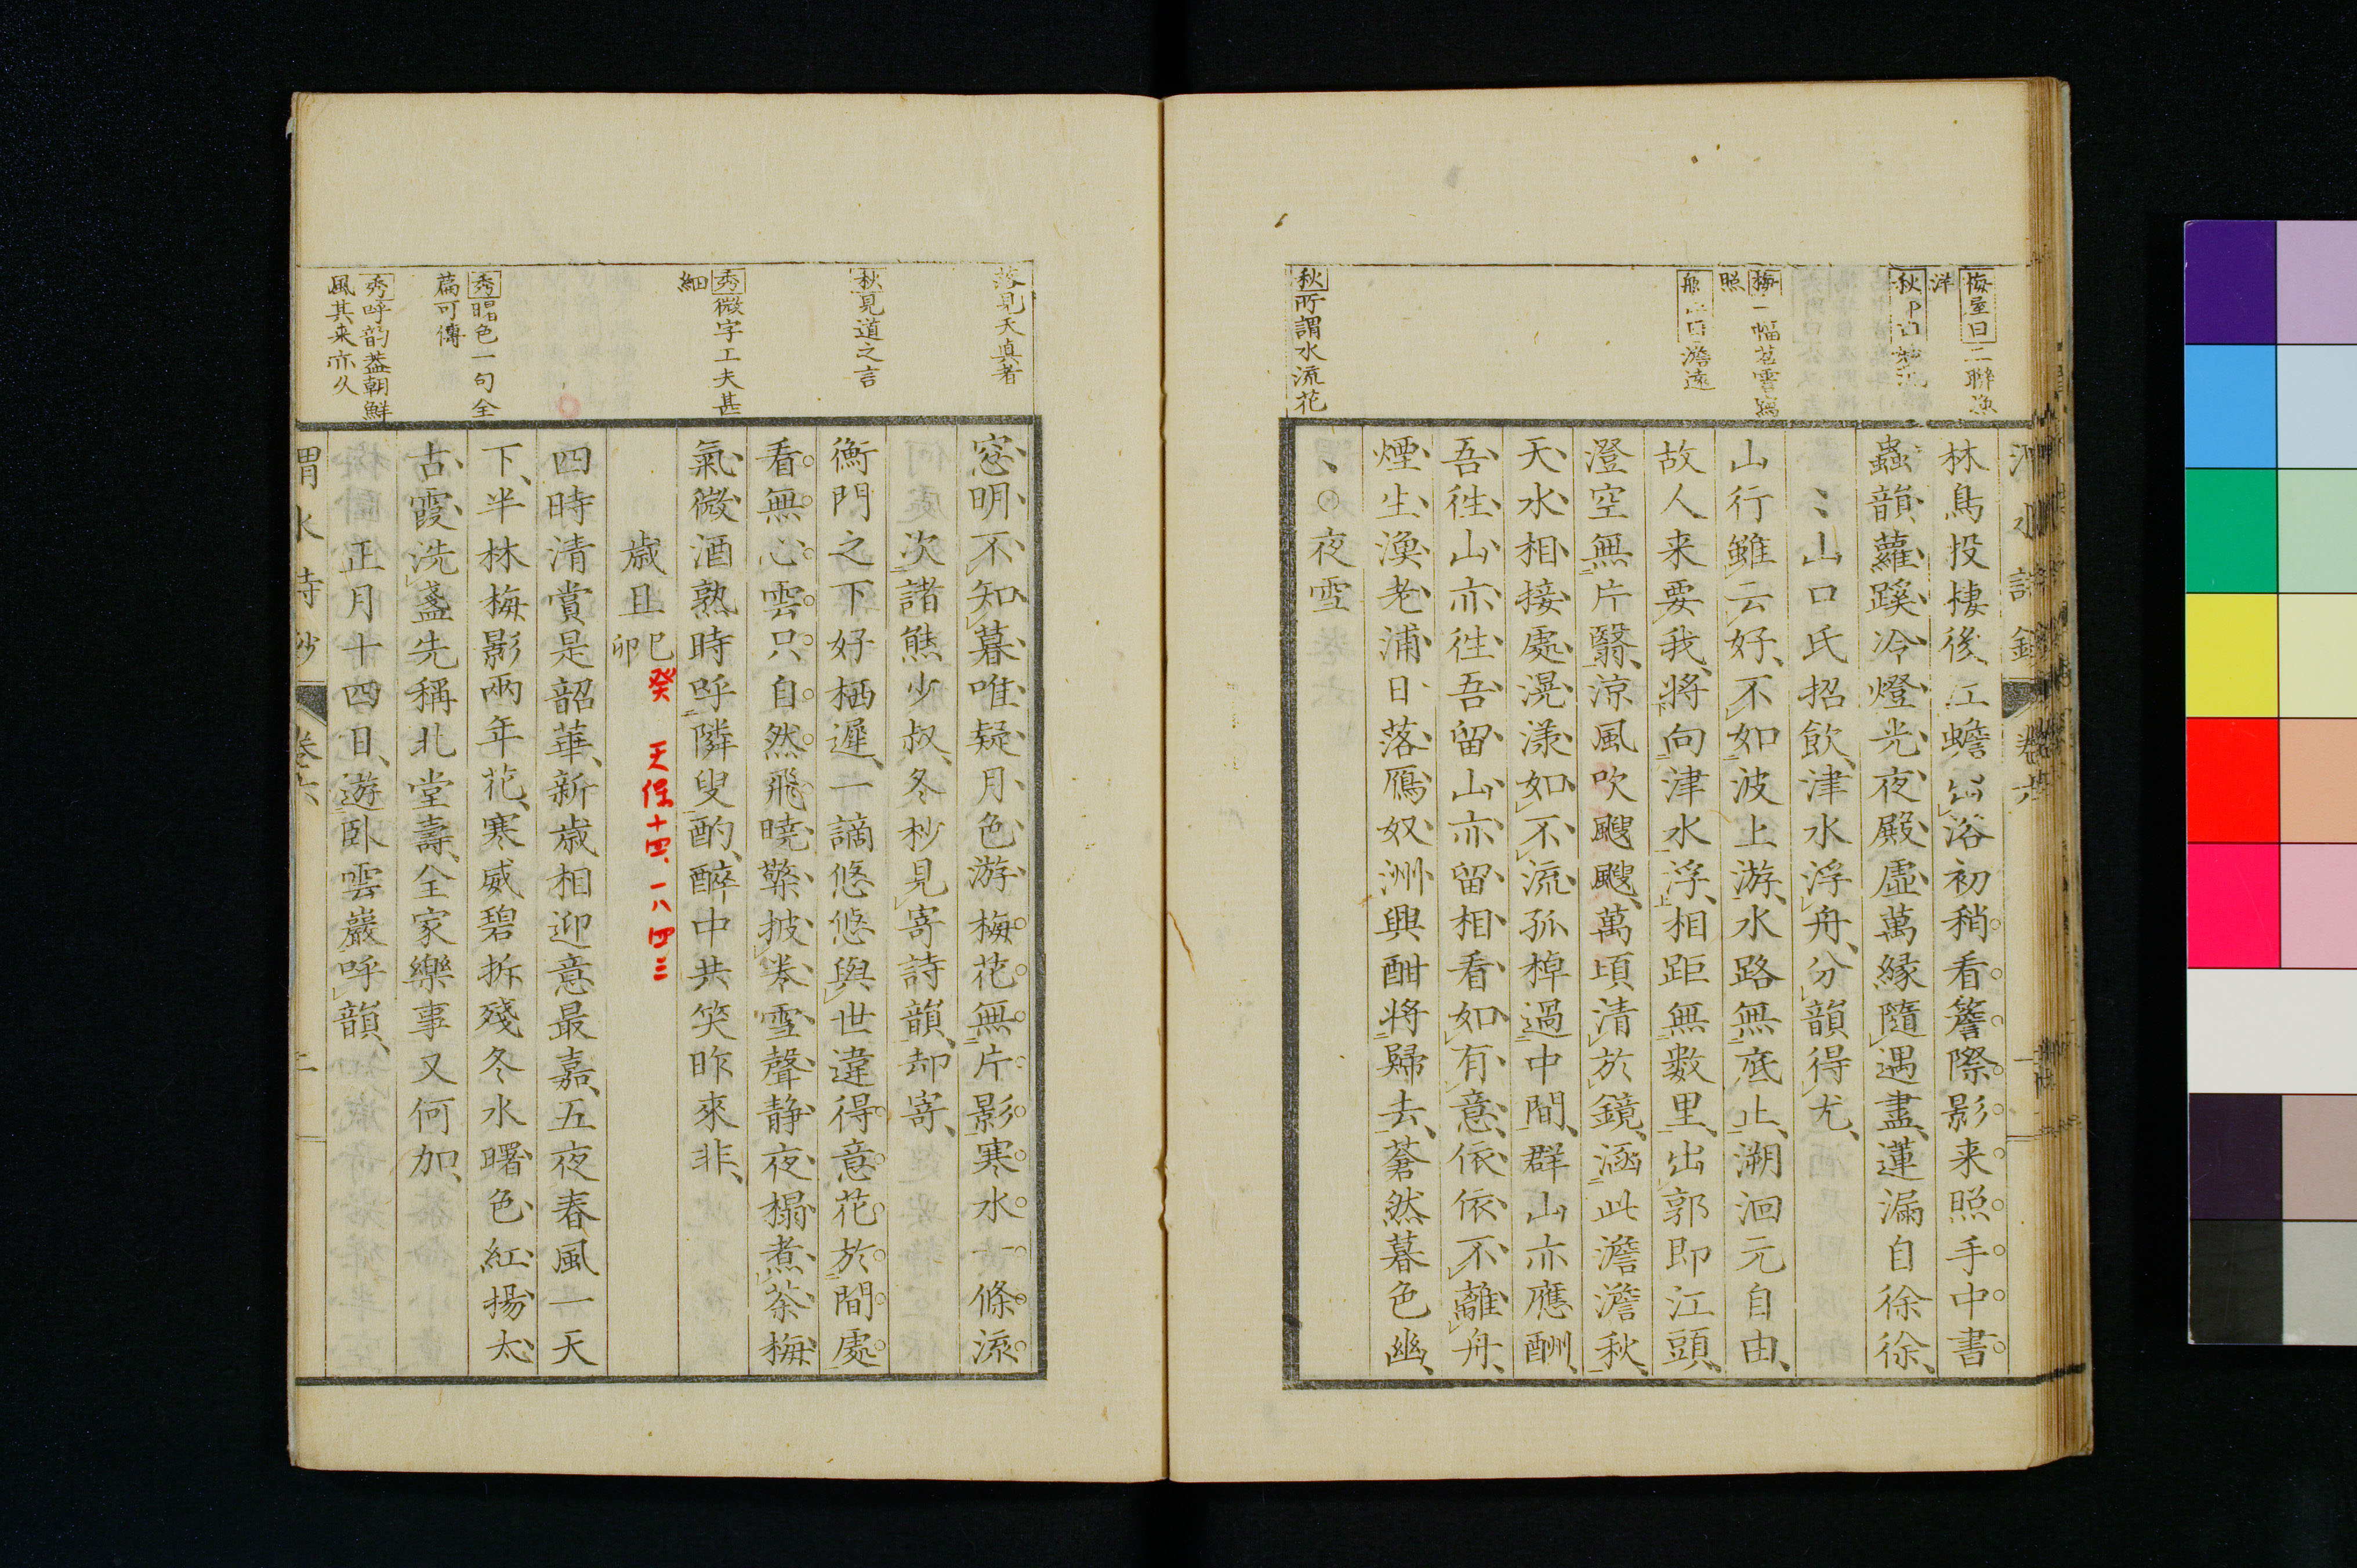 梅屋曰二聯渔
洋
梅一幅苕雲寫
照
澹遠
秋所謂水流花
林鳥投棲後江蟾出浴初稍看簷際影来照手中書
蟲韻蘿蹊冷燈光夜殿虛萬縁隨遇盡蓮漏自徐徐
〻山口氏招飲津水浮舟分韻得尤
山行雖云好不如波上游水路無底止溯洄元自由
故人来要我將向津水浮相距無数里出郭即江頭
澄空無片翳涼風吹颼颼萬頃清於鏡涵此澹澹秋
天水相接處滉漾如不流孤棹過中間群山亦應酬
吾徃山亦徃吾留山亦留相看如有意依依不離舟
煙生漁老浦日落鴈奴洲興酣將歸去蒼然暮色幽
、○夜雪
落見天真者
秋見道之言
秀微字工夫甚
細
秀曙色一句全
篇可傳
秀呼韵葢朝鮮
風其来亦久
窓明不知暮唯疑月色游梅花無片影寒水一條流
次諸熊少叔冬杪見寄詩韻却寄
衡門之下好栖遲一謫悠悠與世違得意花於間處
看無心雲只自然飛曉檠披巻雪聲静夜榻煮茶梅
氣微酒熟時呼隣叟酌醉中共笑昨來非
歳旦 巳卯
癸 天保十四、一八四三
四時清賞是韶華新歳相迎意最嘉五夜春風一天
下半林梅影兩年花寒威碧拆殘冬水曙色紅揚太
古霞洗盞先稱北堂壽全家樂事又何加
正月十四日遊臥雲巖呼韻
渭水詩鈔 卷六 二